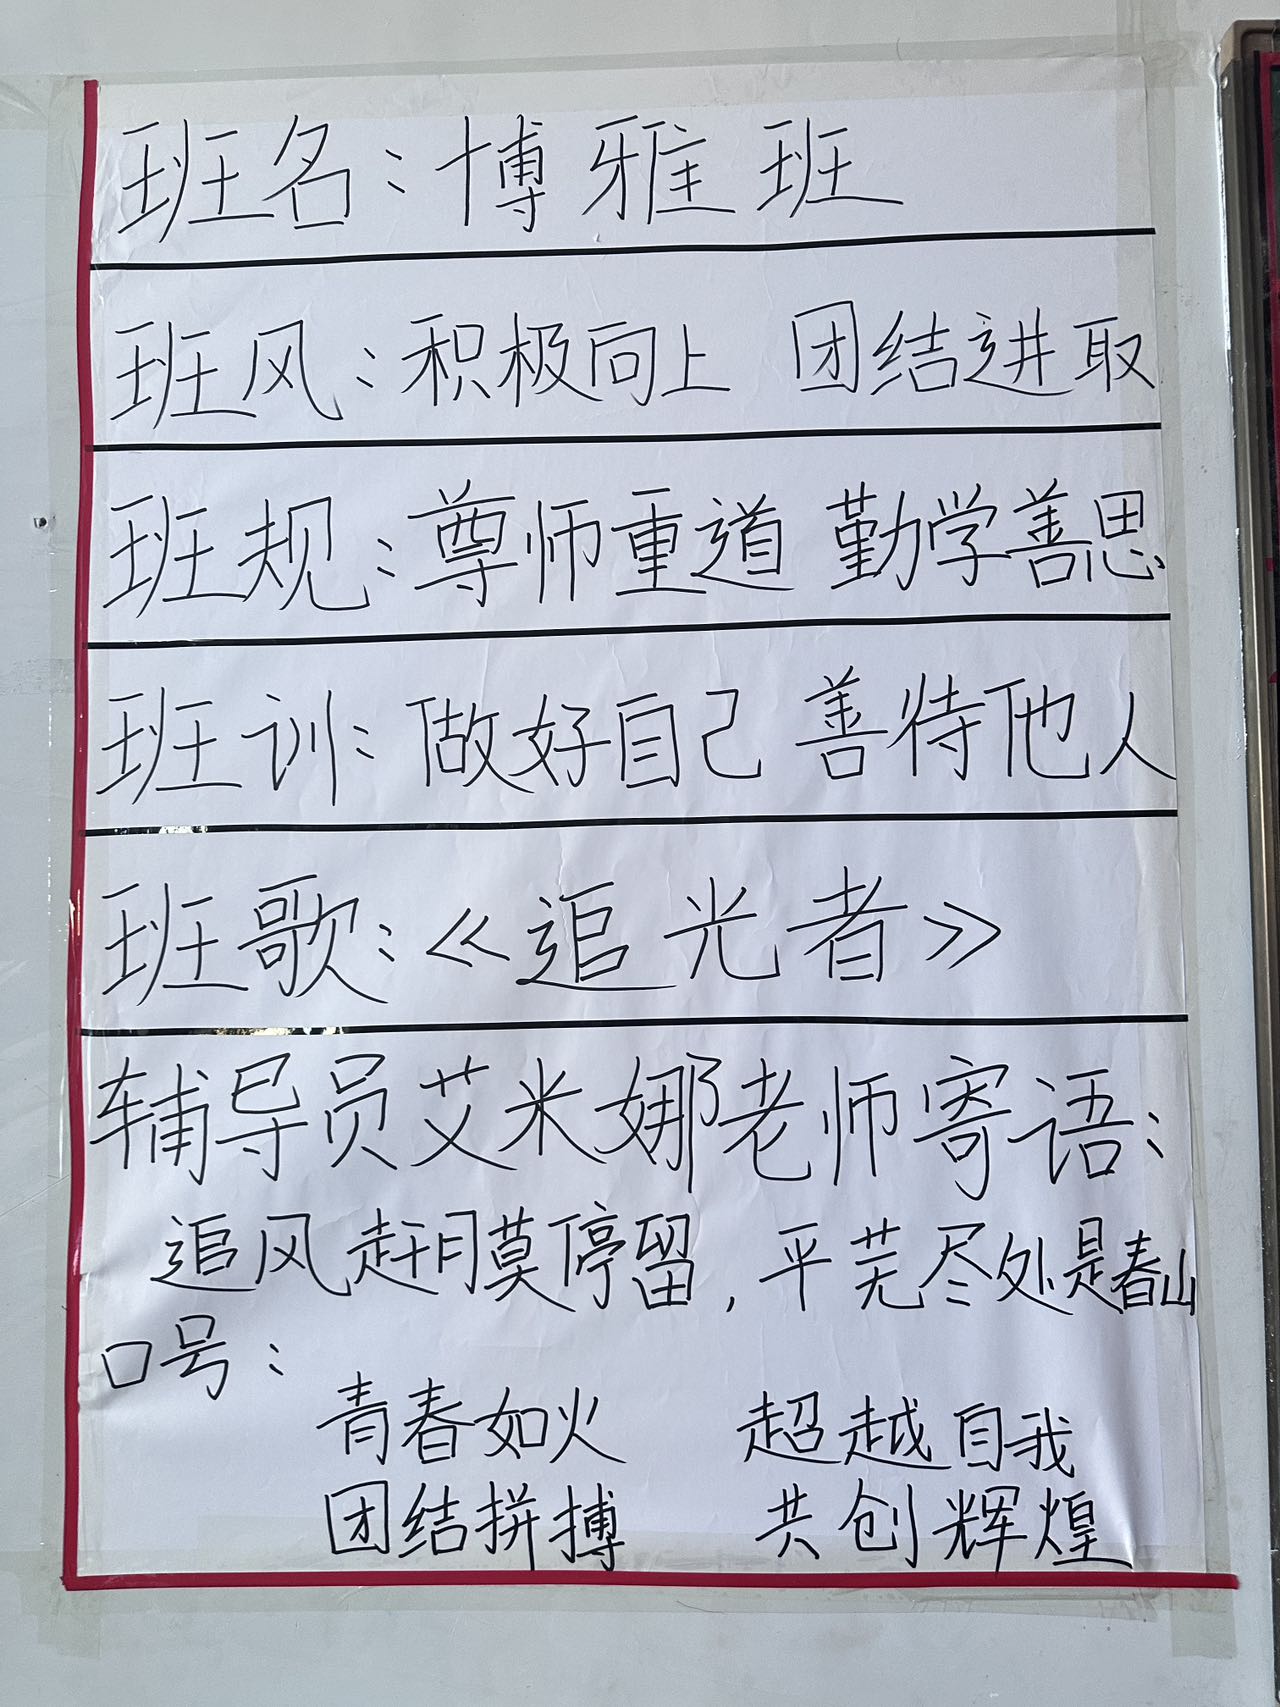 班名：博雅班
班风：积极向上 团结进取
班规：尊师重道 勤学善思
班训：做好自己 善待他人
班歌：《追光者》
辅导员艾米娜老师寄语：
追风赶月莫停留，平芜尽处是春山
口号：
青春如火 超越自我
团结拼搏 共创辉煌